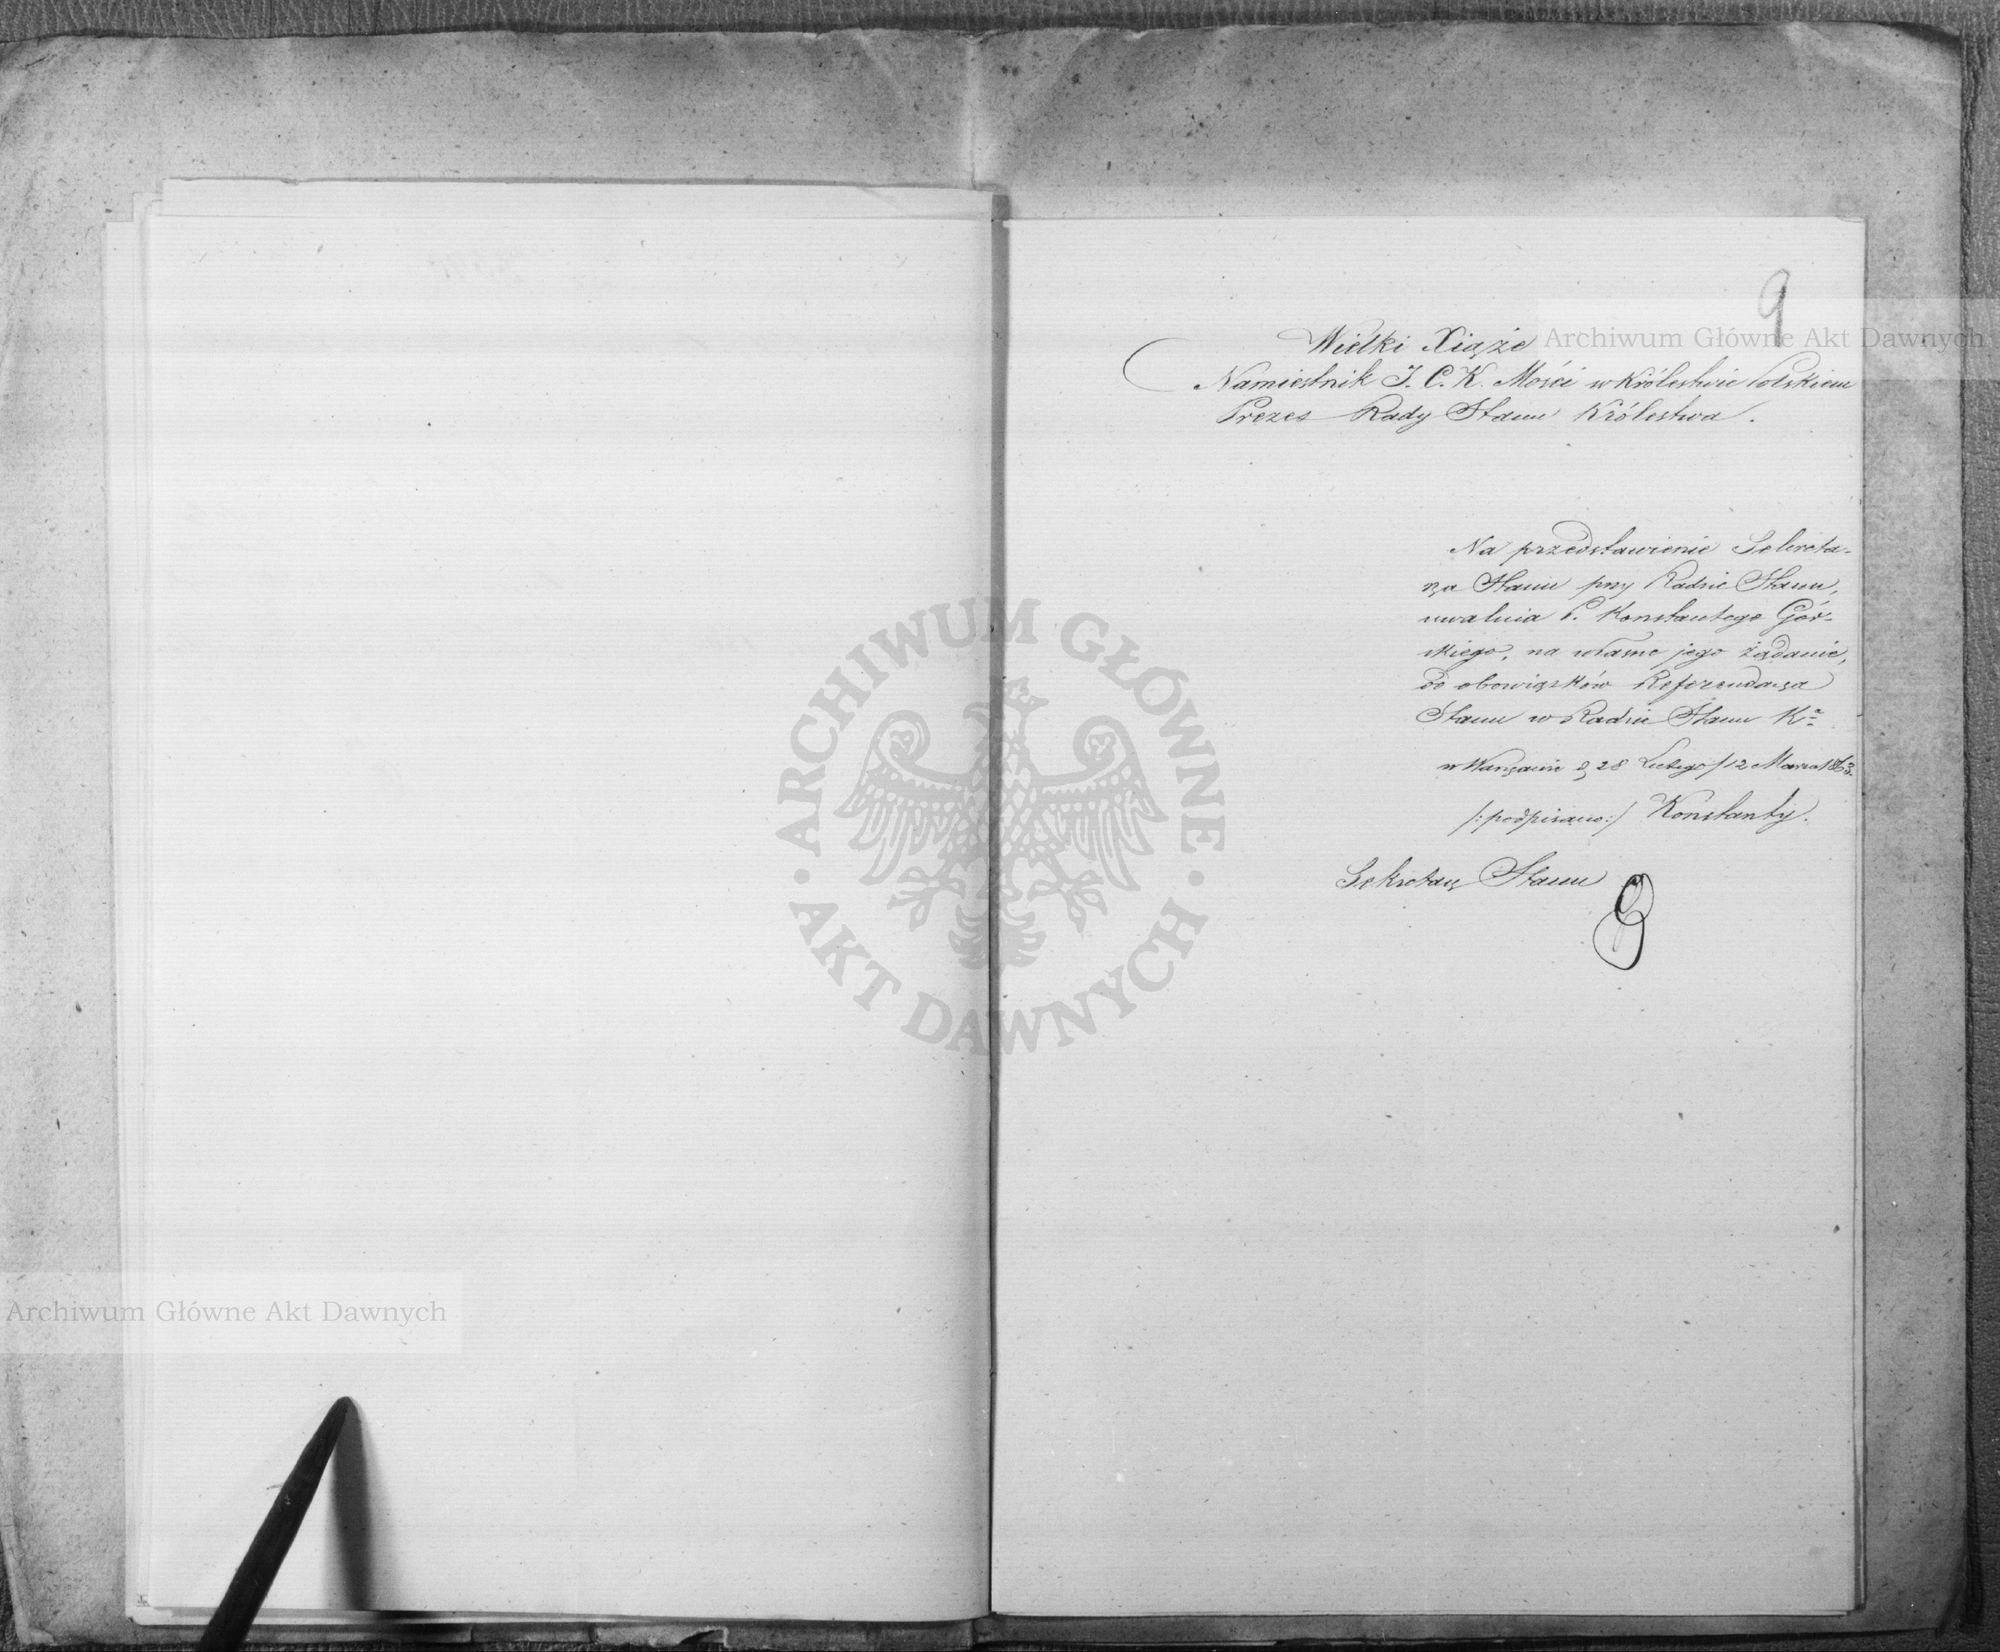 9
Wielki Xiąże
Namiestnik J. C. K. Mości w Królestwie Polskiem
Prezes Rady Stanu Królestwa.
Na przedstawienie Sekreta-
rza Stanu przy Radzie Stanu,
uwalnia P. Konstantego Gór-
skiego, na własne jego żądanie,
od obowiązków Referendarza
Stanu w Radzie Stanu Kа
w Warszawie d. 28 Lutego / 12 Marca 1863.
/: podpisano :/ Konstanty.
Sekretarz Stanu
Archiwum Główne Akt Dawnych
ARCHIWUM GŁÓWNE
· AKT DAWNYCH ·
Archiwum Główne Akt Dawnych